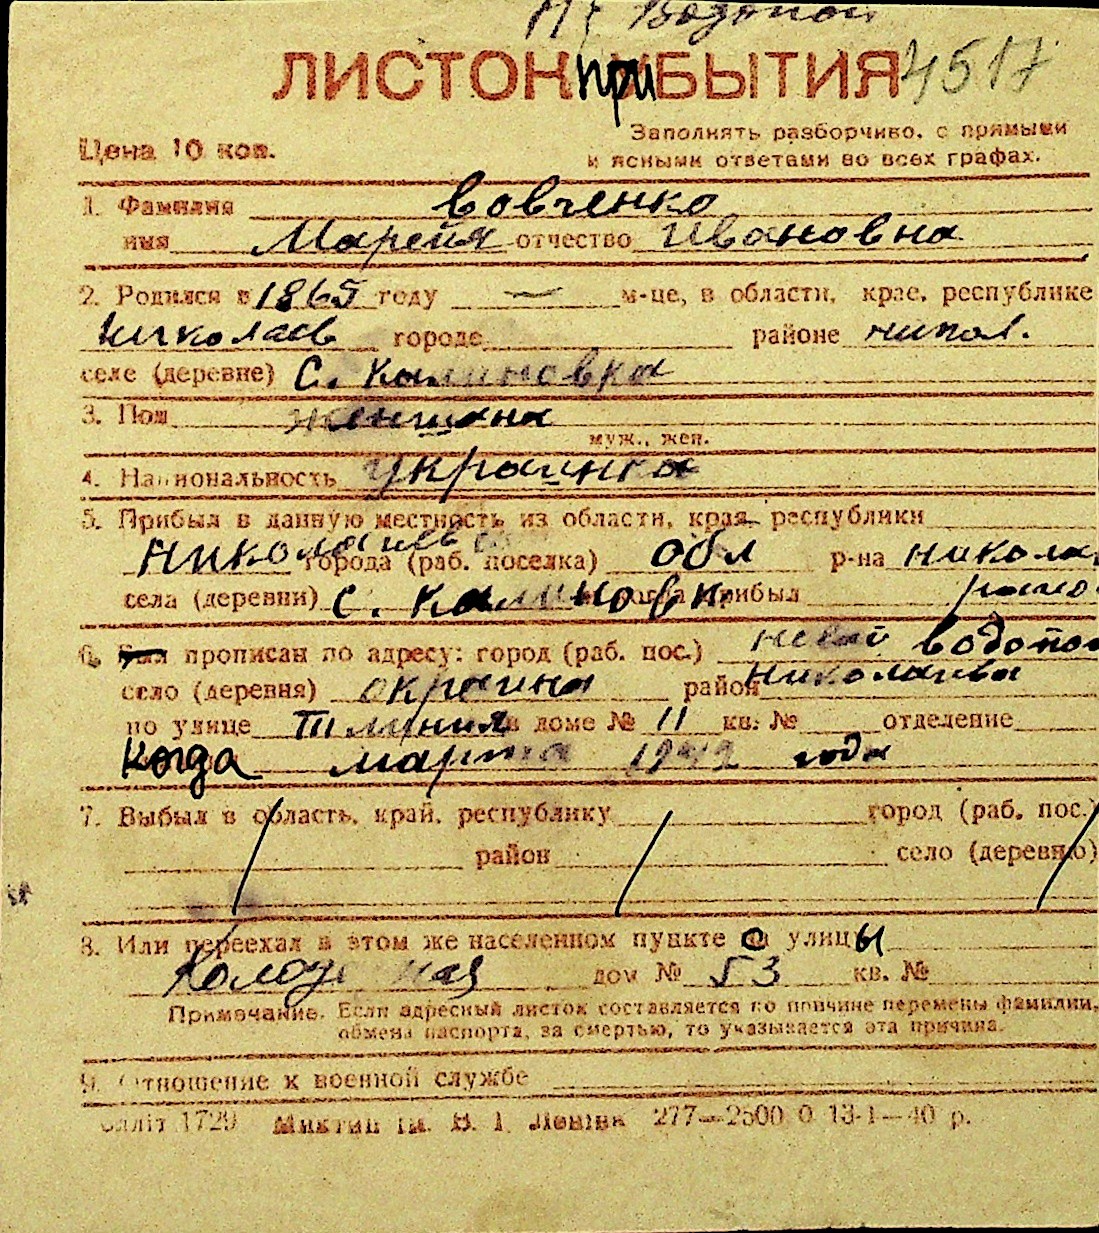 Водопой
ЛИСТОК ПРИБЫТИЯ 4517
Цена 10 коп.
Заполнять разборчиво, с прямыми
и ясными ответами во всех графах.
1. Фамилия Вовченко
имя Марейя отчество Ивановна
2. Родился в 1865 году — м-це, в области, крае, республике
Николаев городе районе никол.
селе (деревне) С. Калиновка
3. Пол женщина
муж., жен.
4. Национальность украинка
5. Прибыл в данную местность из области, края, республики
Николаев города (раб. поселка) обл р-на никола
села (деревни) С. Калиновк когда прибыл
6. Был прописан по адресу: город (раб. пос.) водопой
село (деревня) окраина район Николаева
по улице III линия в доме № 11 кв. № отделение
Когда марта 1942 года
7. Выбыл в область, край, республику город (раб. пос.)
район село (деревню)
8. Или переехал в этом же населенном пункте о улицы
дом № 53 кв. №
Примечание. Если адресный листок составляется по причине перемены фамилии,
обмена паспорта, за смертью, то указывается эта причина.
9. Отношение к военной службе
1729 В. І. Леніна 277—2500 0 13-1—40 р.